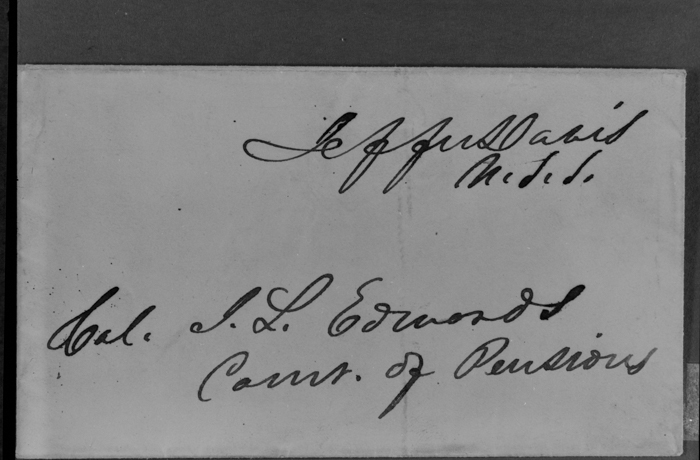 Jeffer Davis
U.S.S.
Col. J. L. Edwards
Comr. of Pensions